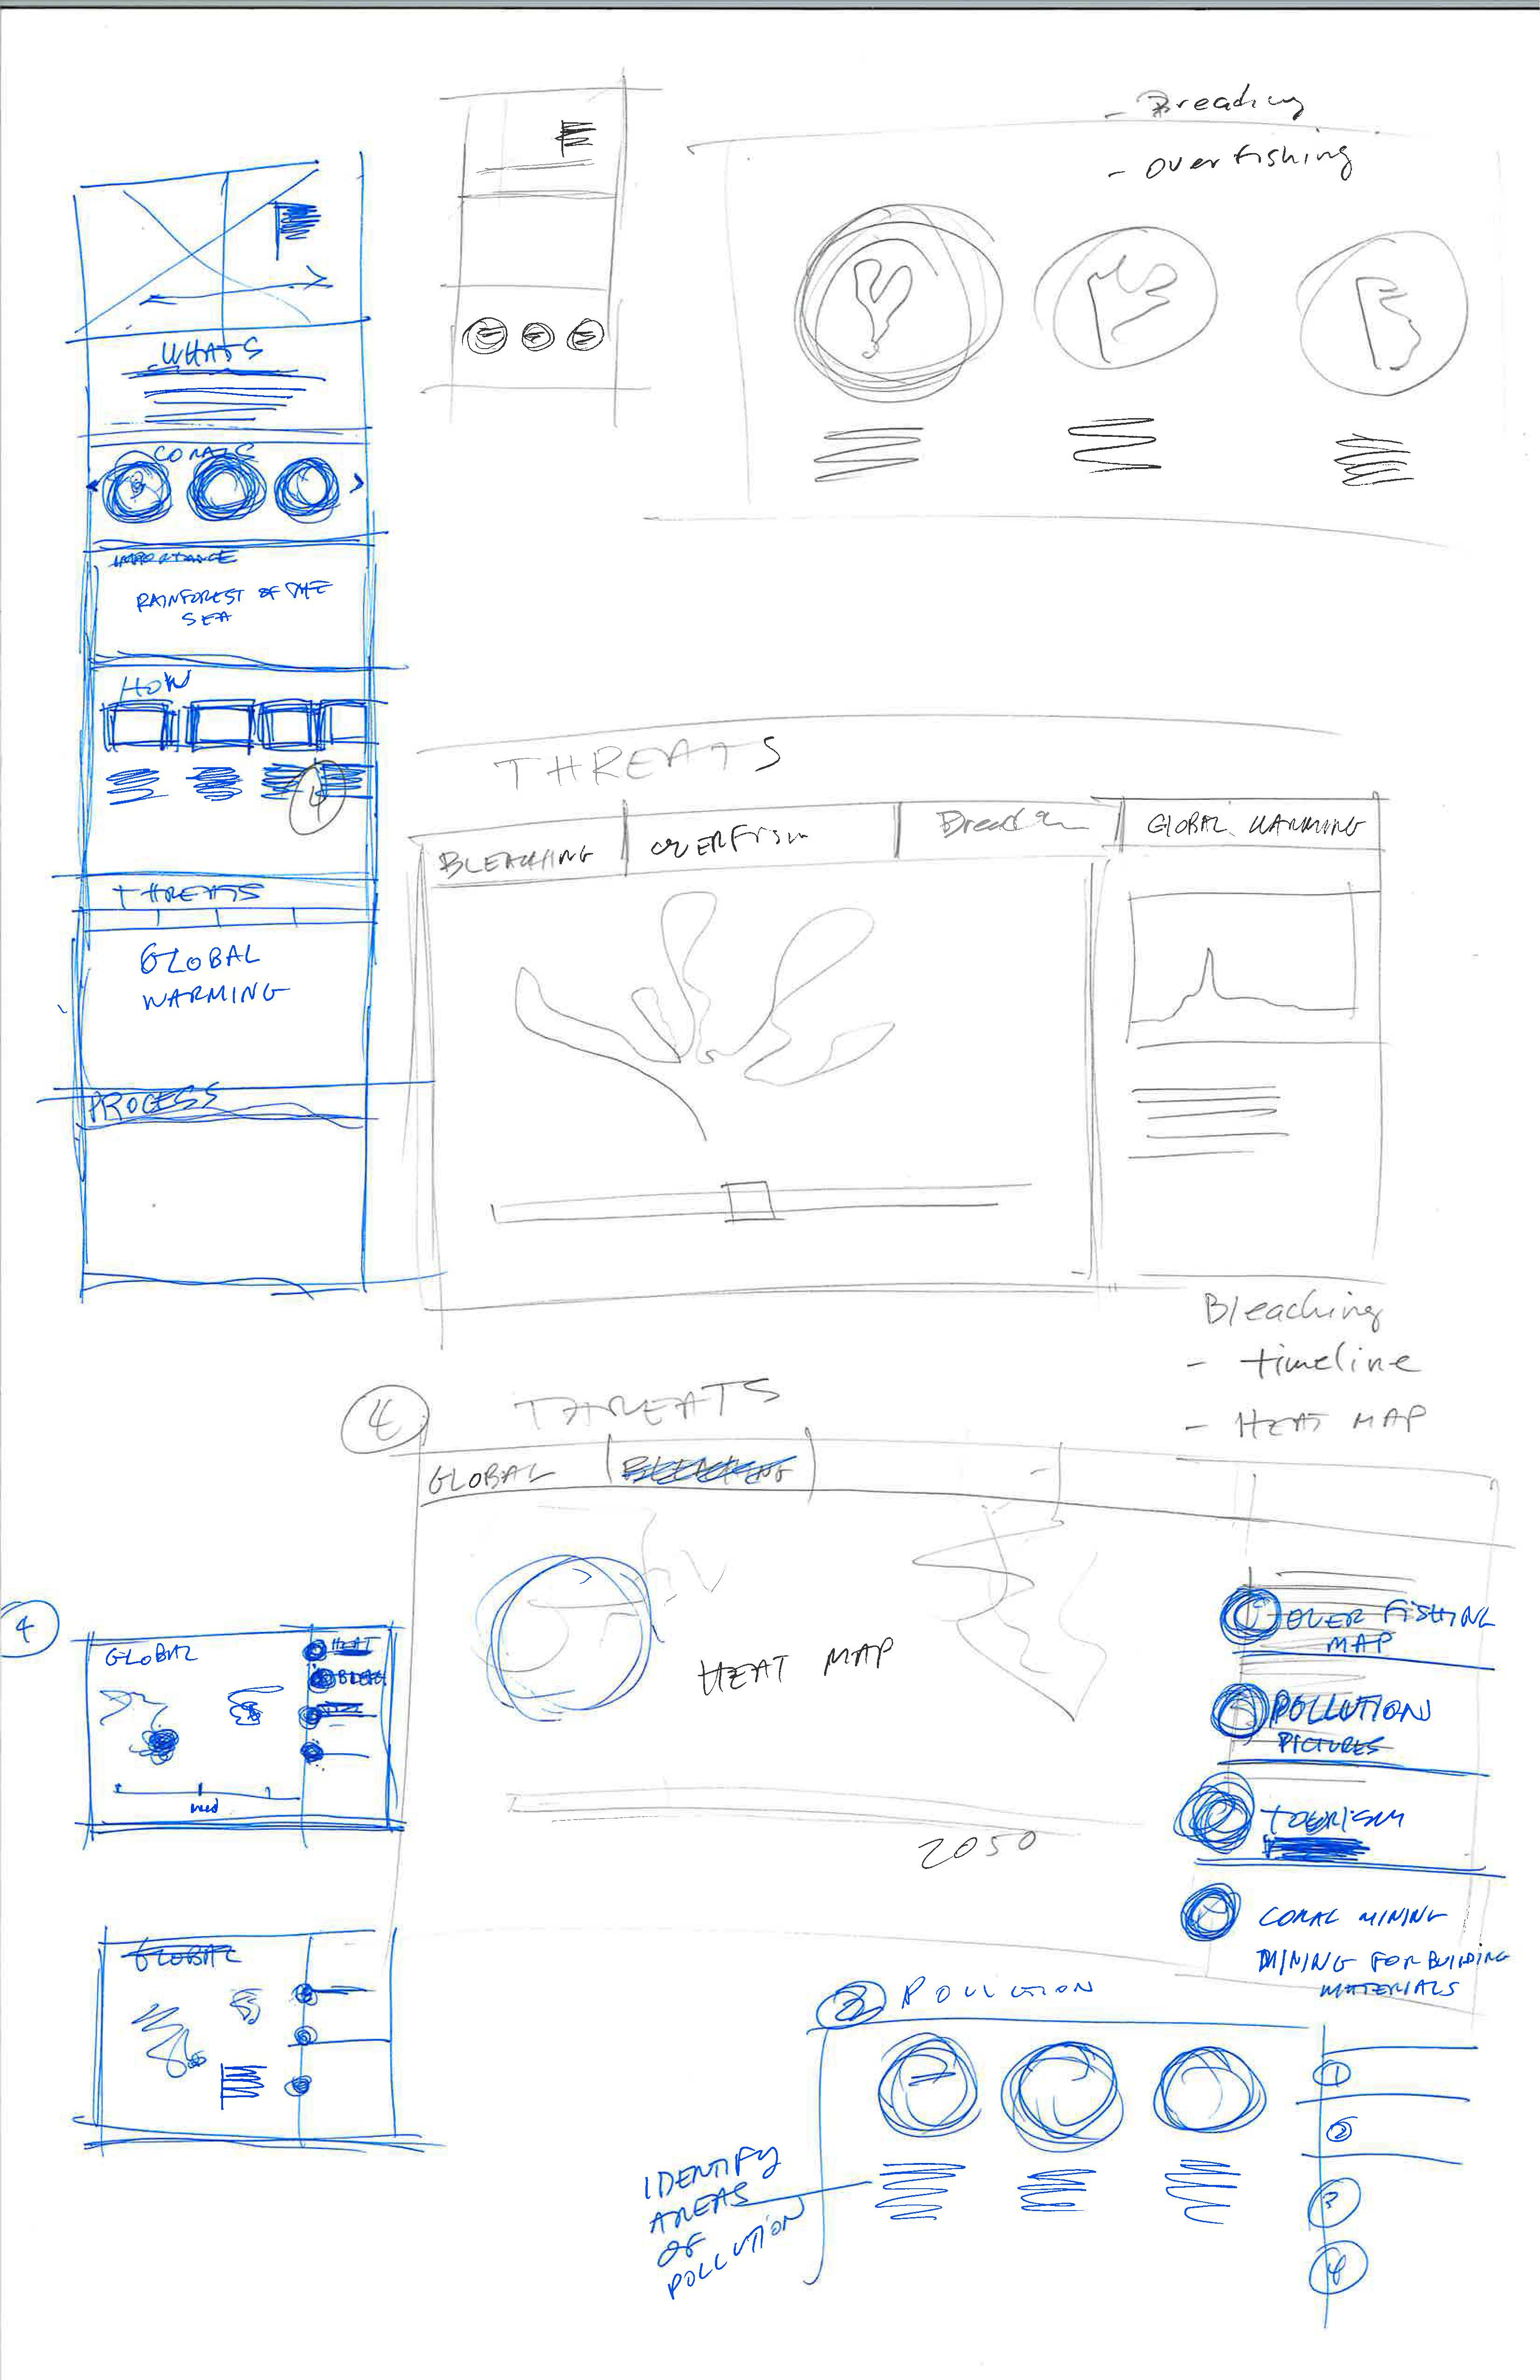 - Breading
- overfishing
WHATS
CORALS
IMPORTANCE
RAINFOREST OF THE
SEA
HOW
4
THREATS
GLOBAL
WARMING
PROCESS
THREATS
BLEACHING
OVERFISM
GLOBAL WARMING
Bleaching
- timeline
- HEAT MAP
4
THREATS
GLOBAL
BLEACHING
HEAT MAP
2050
OVER FISHING
MAP
POLLUTION
PICTURES
TOURISM
CORAL MINING
MINING FOR BUILDING
MATERIALS
4
GLOBAL
HEAT
BLEAC
GLOBAL
2 POLLUTION
IDENTIFY
AREAS
OF
POLLUTION
1
2
3
4